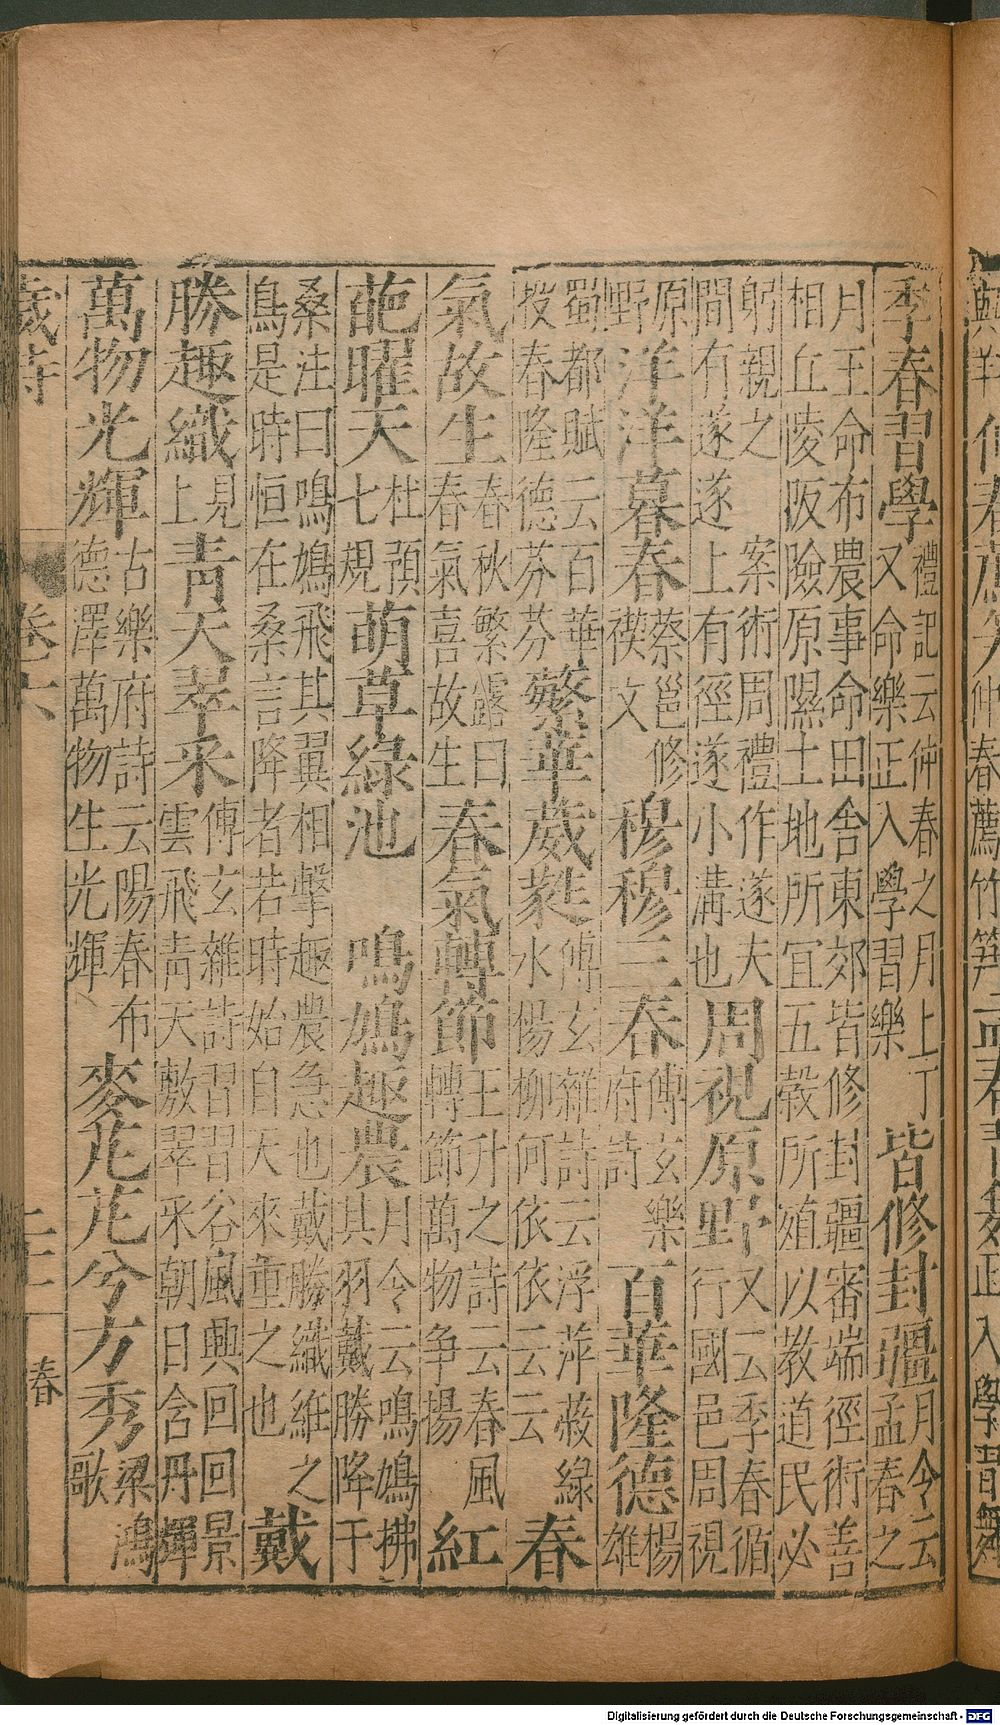 季春習學禮記云仲春之月上丁又命樂正入學習樂皆修封疆月令云孟春之
月王命布農事命田舍東郊皆修封疆審端徑術善相丘陵阪險原隰土地所宜五穀所殖以教道民必
躬親之案術周禮作遂夫間有遂遂上有徑遂小溝也周視原野又云季春循行國邑周視
原野洋洋暮春蔡邕修禊文穆穆三春傅玄樂府詩百華隆德楊雄
蜀都賦云百華投春隆德芬芬繁華葳蕤傅玄雜詩云浮萍蔽綠水楊柳何依依云云春
氣故生春秋繁露曰春氣喜故生春氣轉節王升之詩云春風轉節萬物争揚紅
葩曜天杜預七規萌草綠池 鳴鳩趣農月令云鳴鳩拂其羽戴勝降于
桑注曰鳴鳩飛其翼相擊趣農急也戴勝織維之鳥是時恒在桑言降者若時始自天來重之也戴
勝趣織見上青天翠采傅玄雜詩習習谷風興回回景雲飛青天敷翠采朝日含丹輝
萬物光輝古樂府詩云陽春布德澤萬物生光輝麥芃芃兮方秀梁鴻歌
歲時 卷六 春
Digitalisierung gefördert durch die Deutsche Forschungsgemeinschaft - DFG